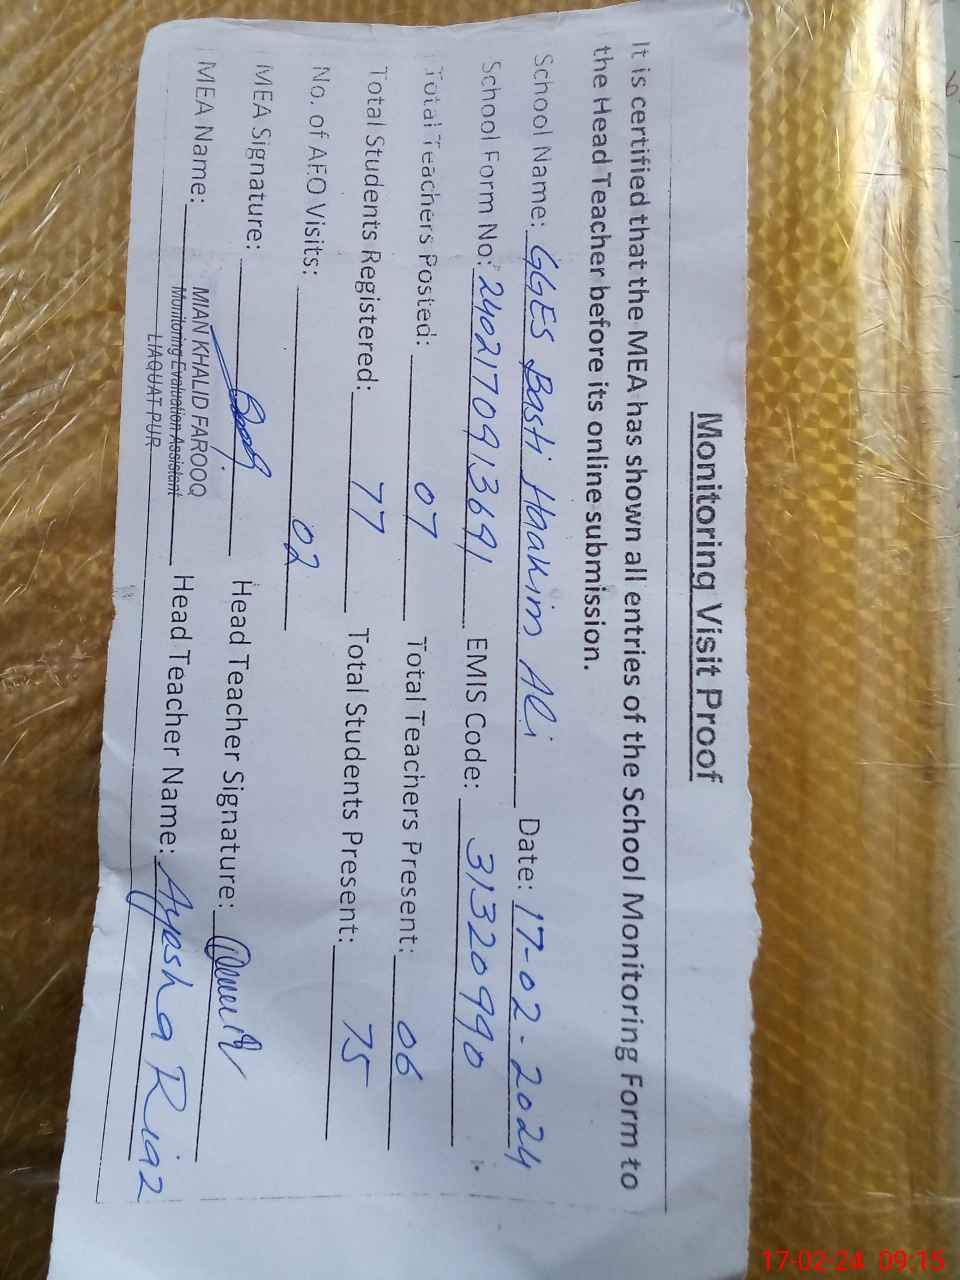 Monitoring Visit Proof
It is certified that the MEA has shown all entries of the School Monitoring Form to
the Head Teacher before its online submission.
School Name: GGES Basti Haakim Ali Date: 17-02-2024
School Form No: 2402170913691 EMIS Code: 31320990
Total Teachers Posted: 07 Total Teachers Present: 06
Total Students Registered: 77 Total Students Present: 75
No. of AEO Visits: 02
MEA Signature: Head Teacher Signature:
MEA Name: MIAN KHALID FAROOQ Head Teacher Name: Ayesha Riaz
Monitoring Evaluation Assistant
LIAQUAT PUR
17-02-24 09:15